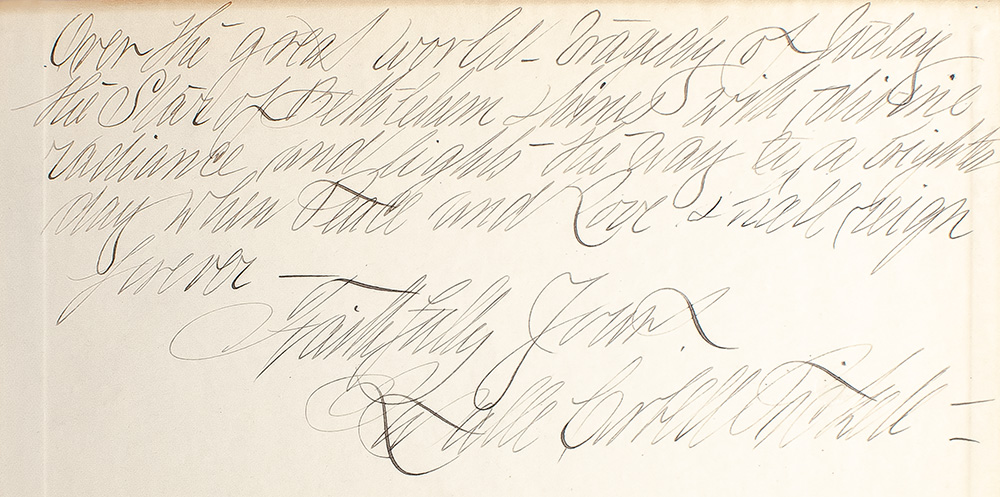 Over the great world-tragedy of today
the Star of Bethlehem shines with divine
radiance and lights the way to a brighter
day when Peace and Love shall reign
forever —
Faithfully Yours
La Salle Corbell Pickett —